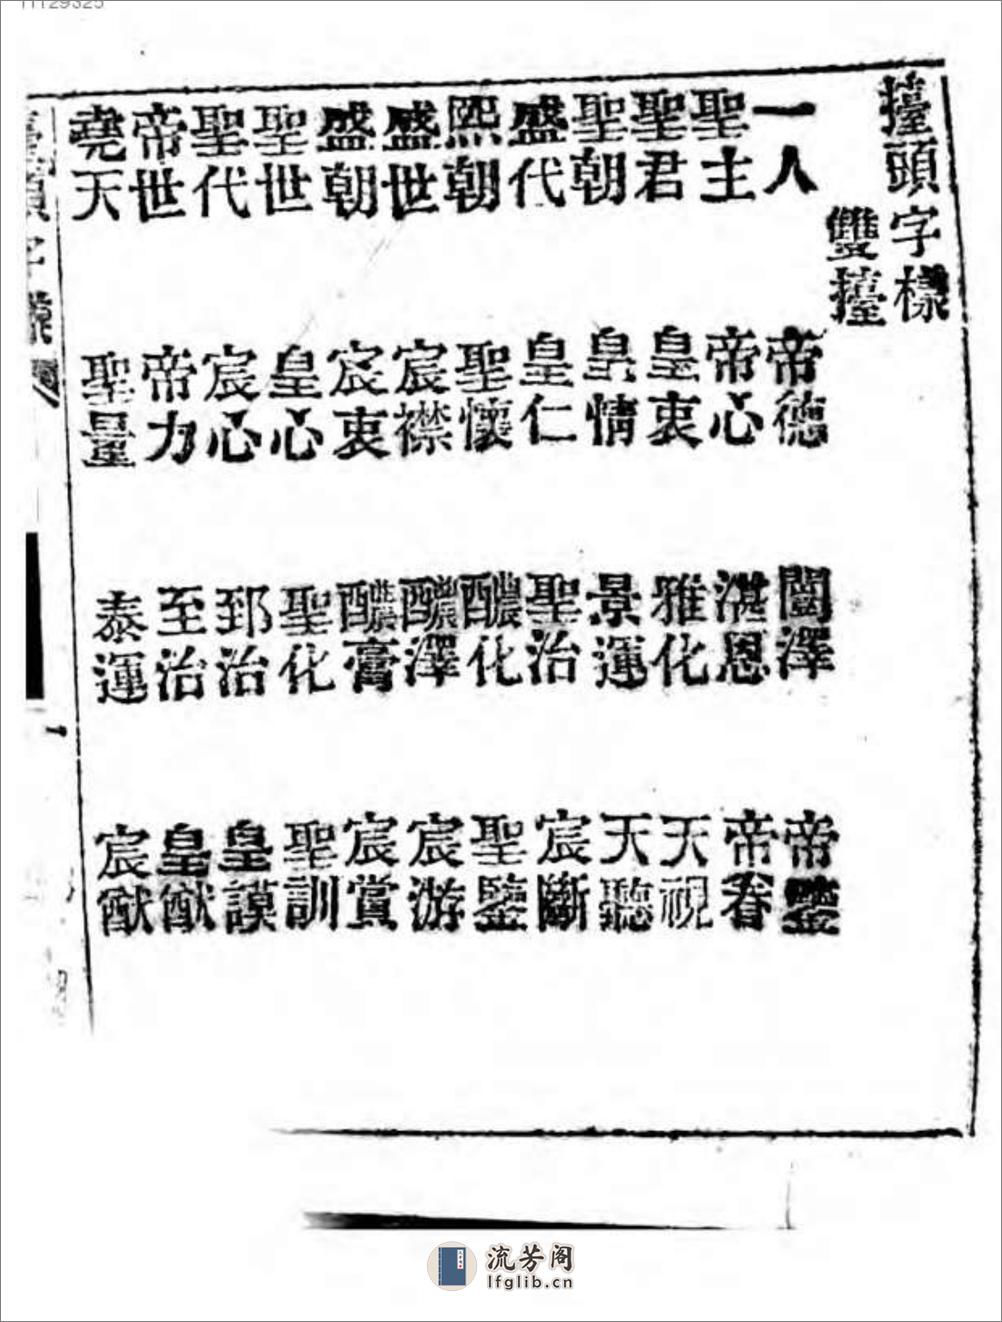 擡頭字樣
雙擡
一人 帝德 闓澤 帝鑒
聖主 帝心 湛恩 帝眷
聖君 皇衷 雅化 天視
聖朝 皇情 景運 天聽
盛代 皇仁 聖治 宸斷
熙朝 聖懷 醲化 聖鑒
盛世 宸襟 醲澤 宸游
盛朝 宸衷 醲膏 宸賞
聖世 皇心 聖化 聖訓
聖代 宸心 郅治 皇謨
帝世 帝力 至治 皇猷
堯天 聖量 泰運 宸猷
流芳阁
lfglib.cn